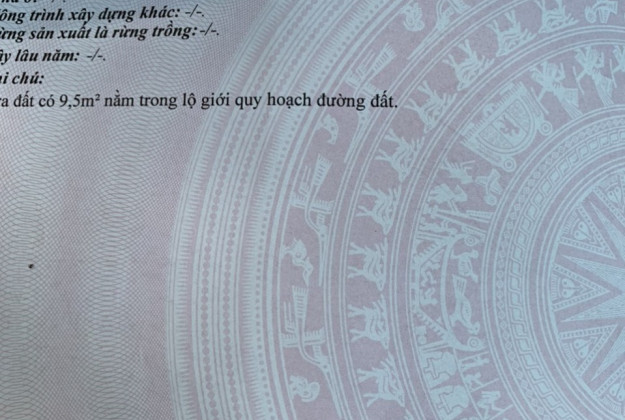 ông trình xây dựng khác: -/-.
ừng sản xuất là rừng trồng: -/-.
ây lâu năm: -/-.
i chú:
ửa đất có 9,5m² nằm trong lộ giới quy hoạch đường đất.